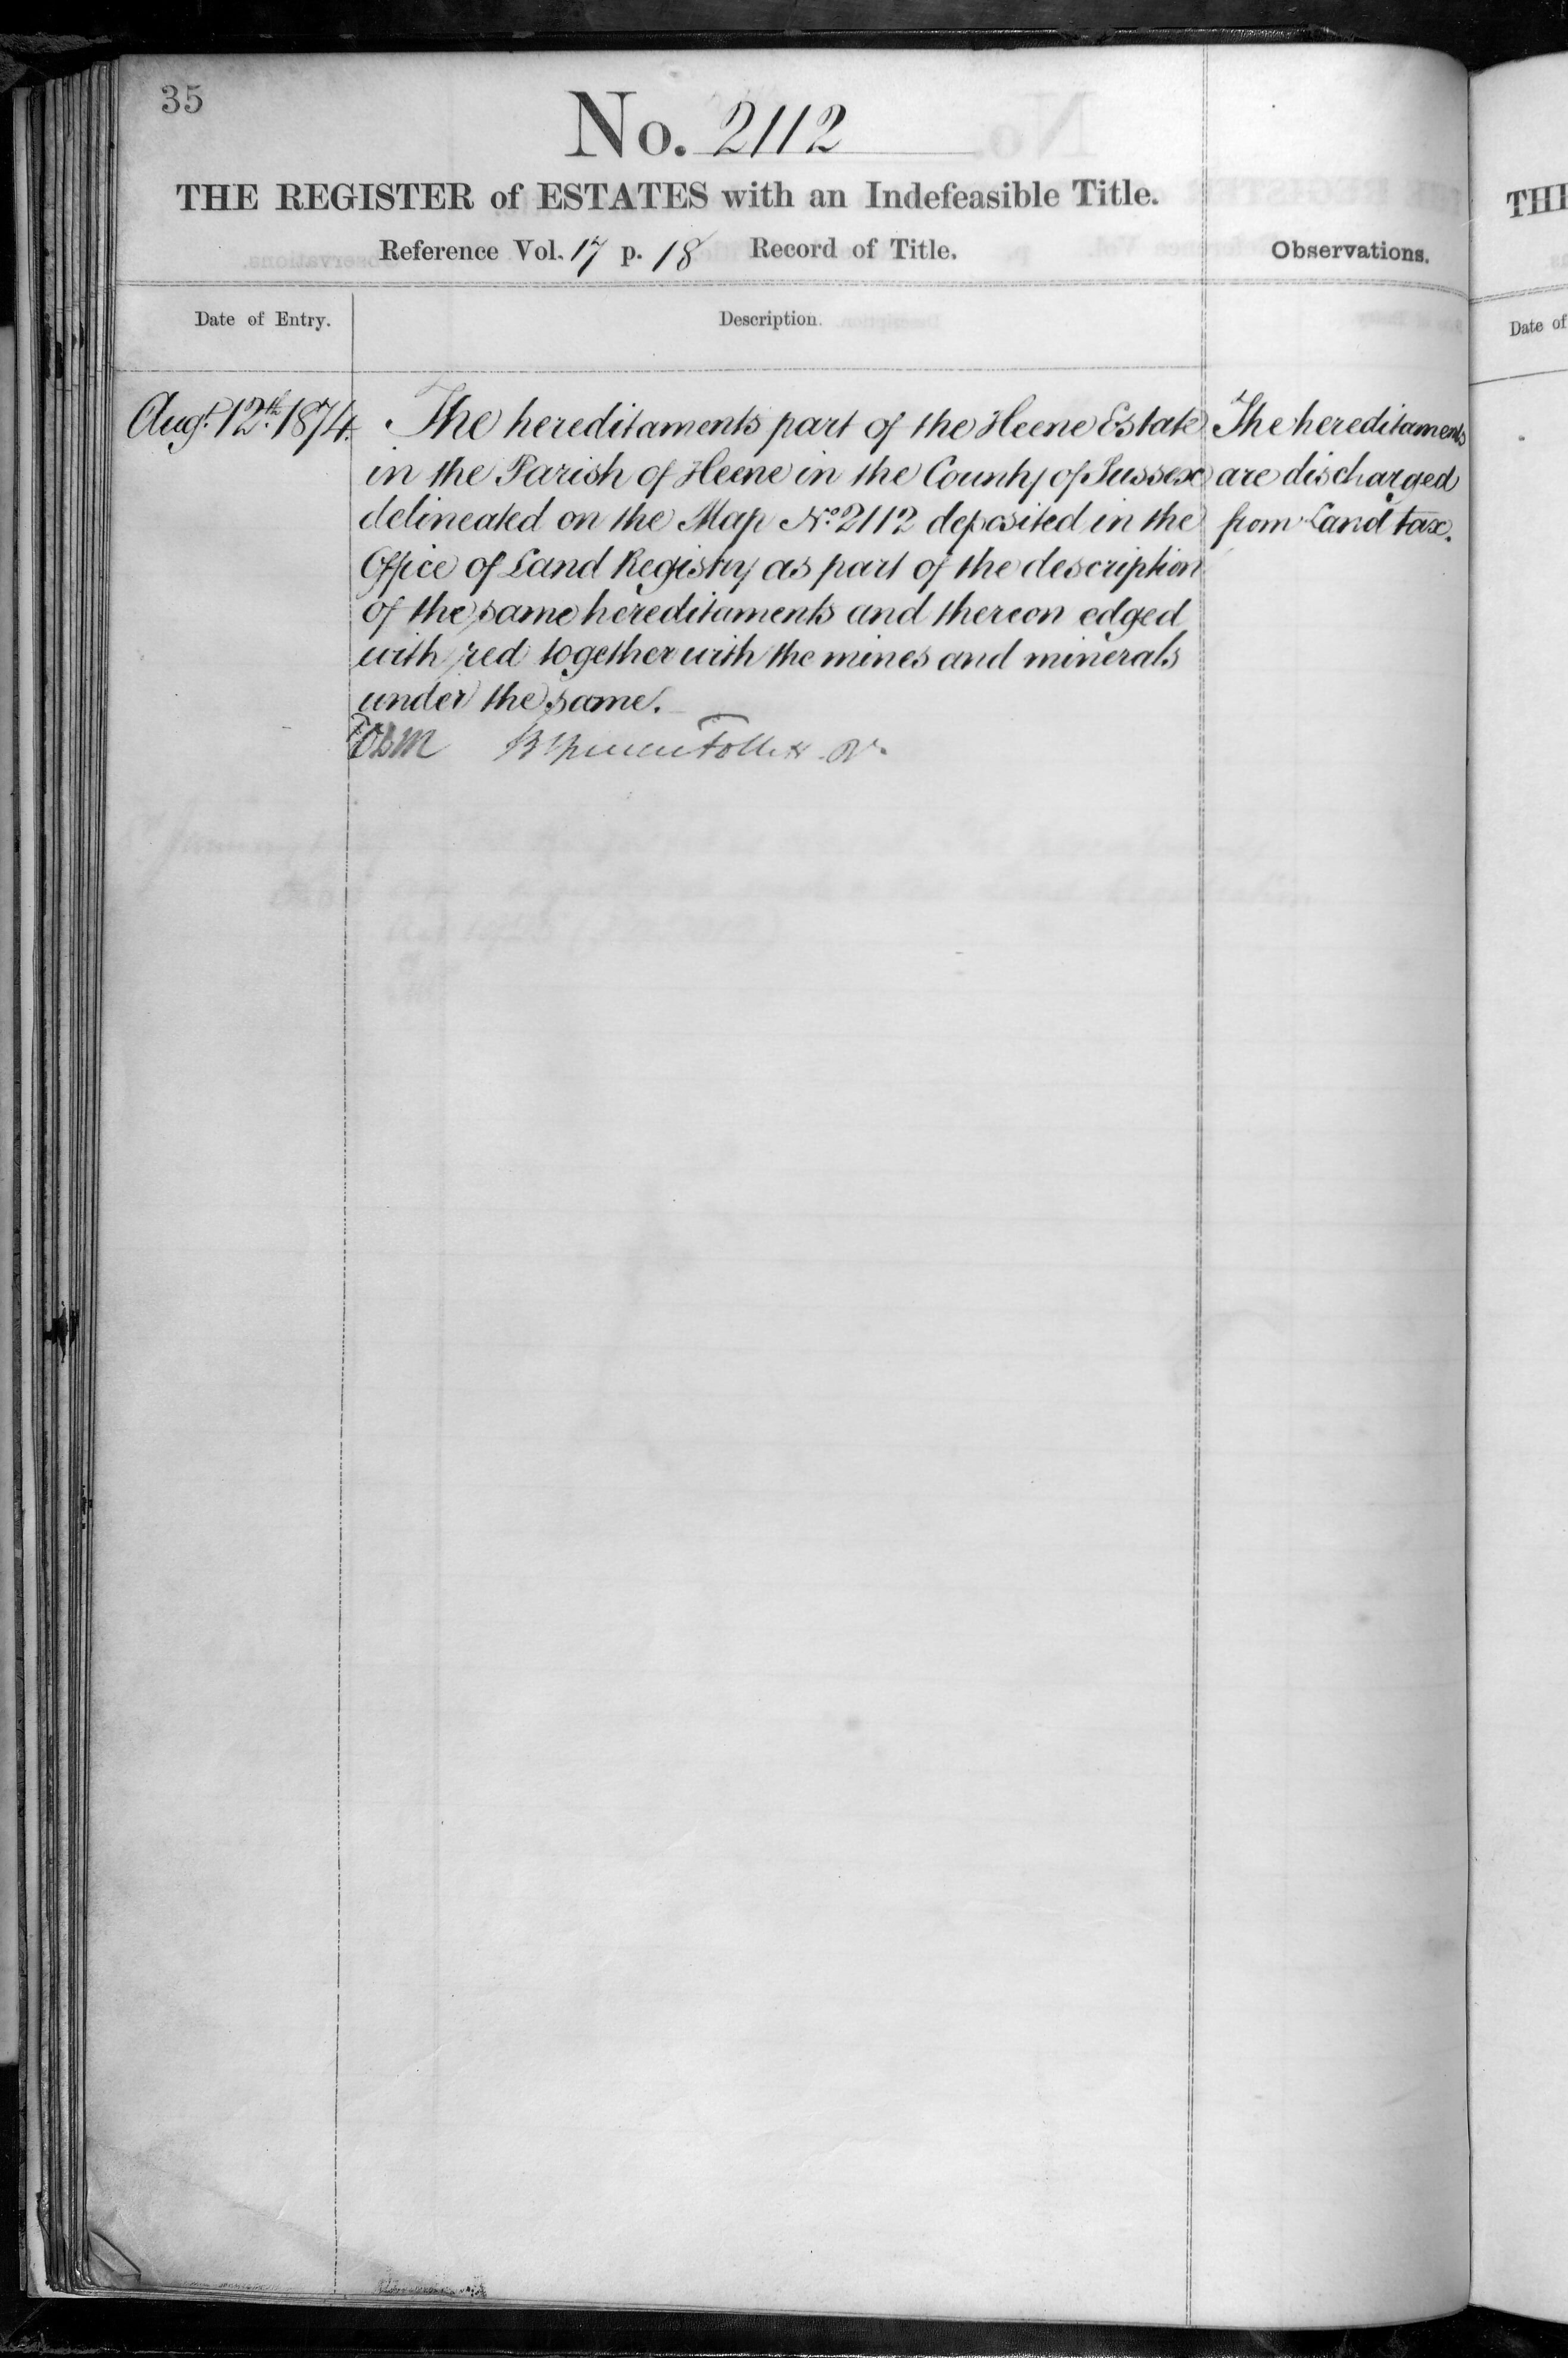 35
No. 2112
THE REGISTER of ESTATES with an Indefeasible Title.
Reference Vol. 17 p. 18 Record of Title.
Observations.
Date of Entry.
Description.
Augt. 12th. 1874.
The hereditaments part of the Heene Estate
in the Parish of Heene in the County of Sussex
delineated on the Map No. 2112 deposited in the
Office of Land Registry as part of the description
of the same hereditaments and thereon edged
with red together with the mines and minerals
under the same.
The hereditaments
are discharged
from Land tax.
Follett
TH
Date of